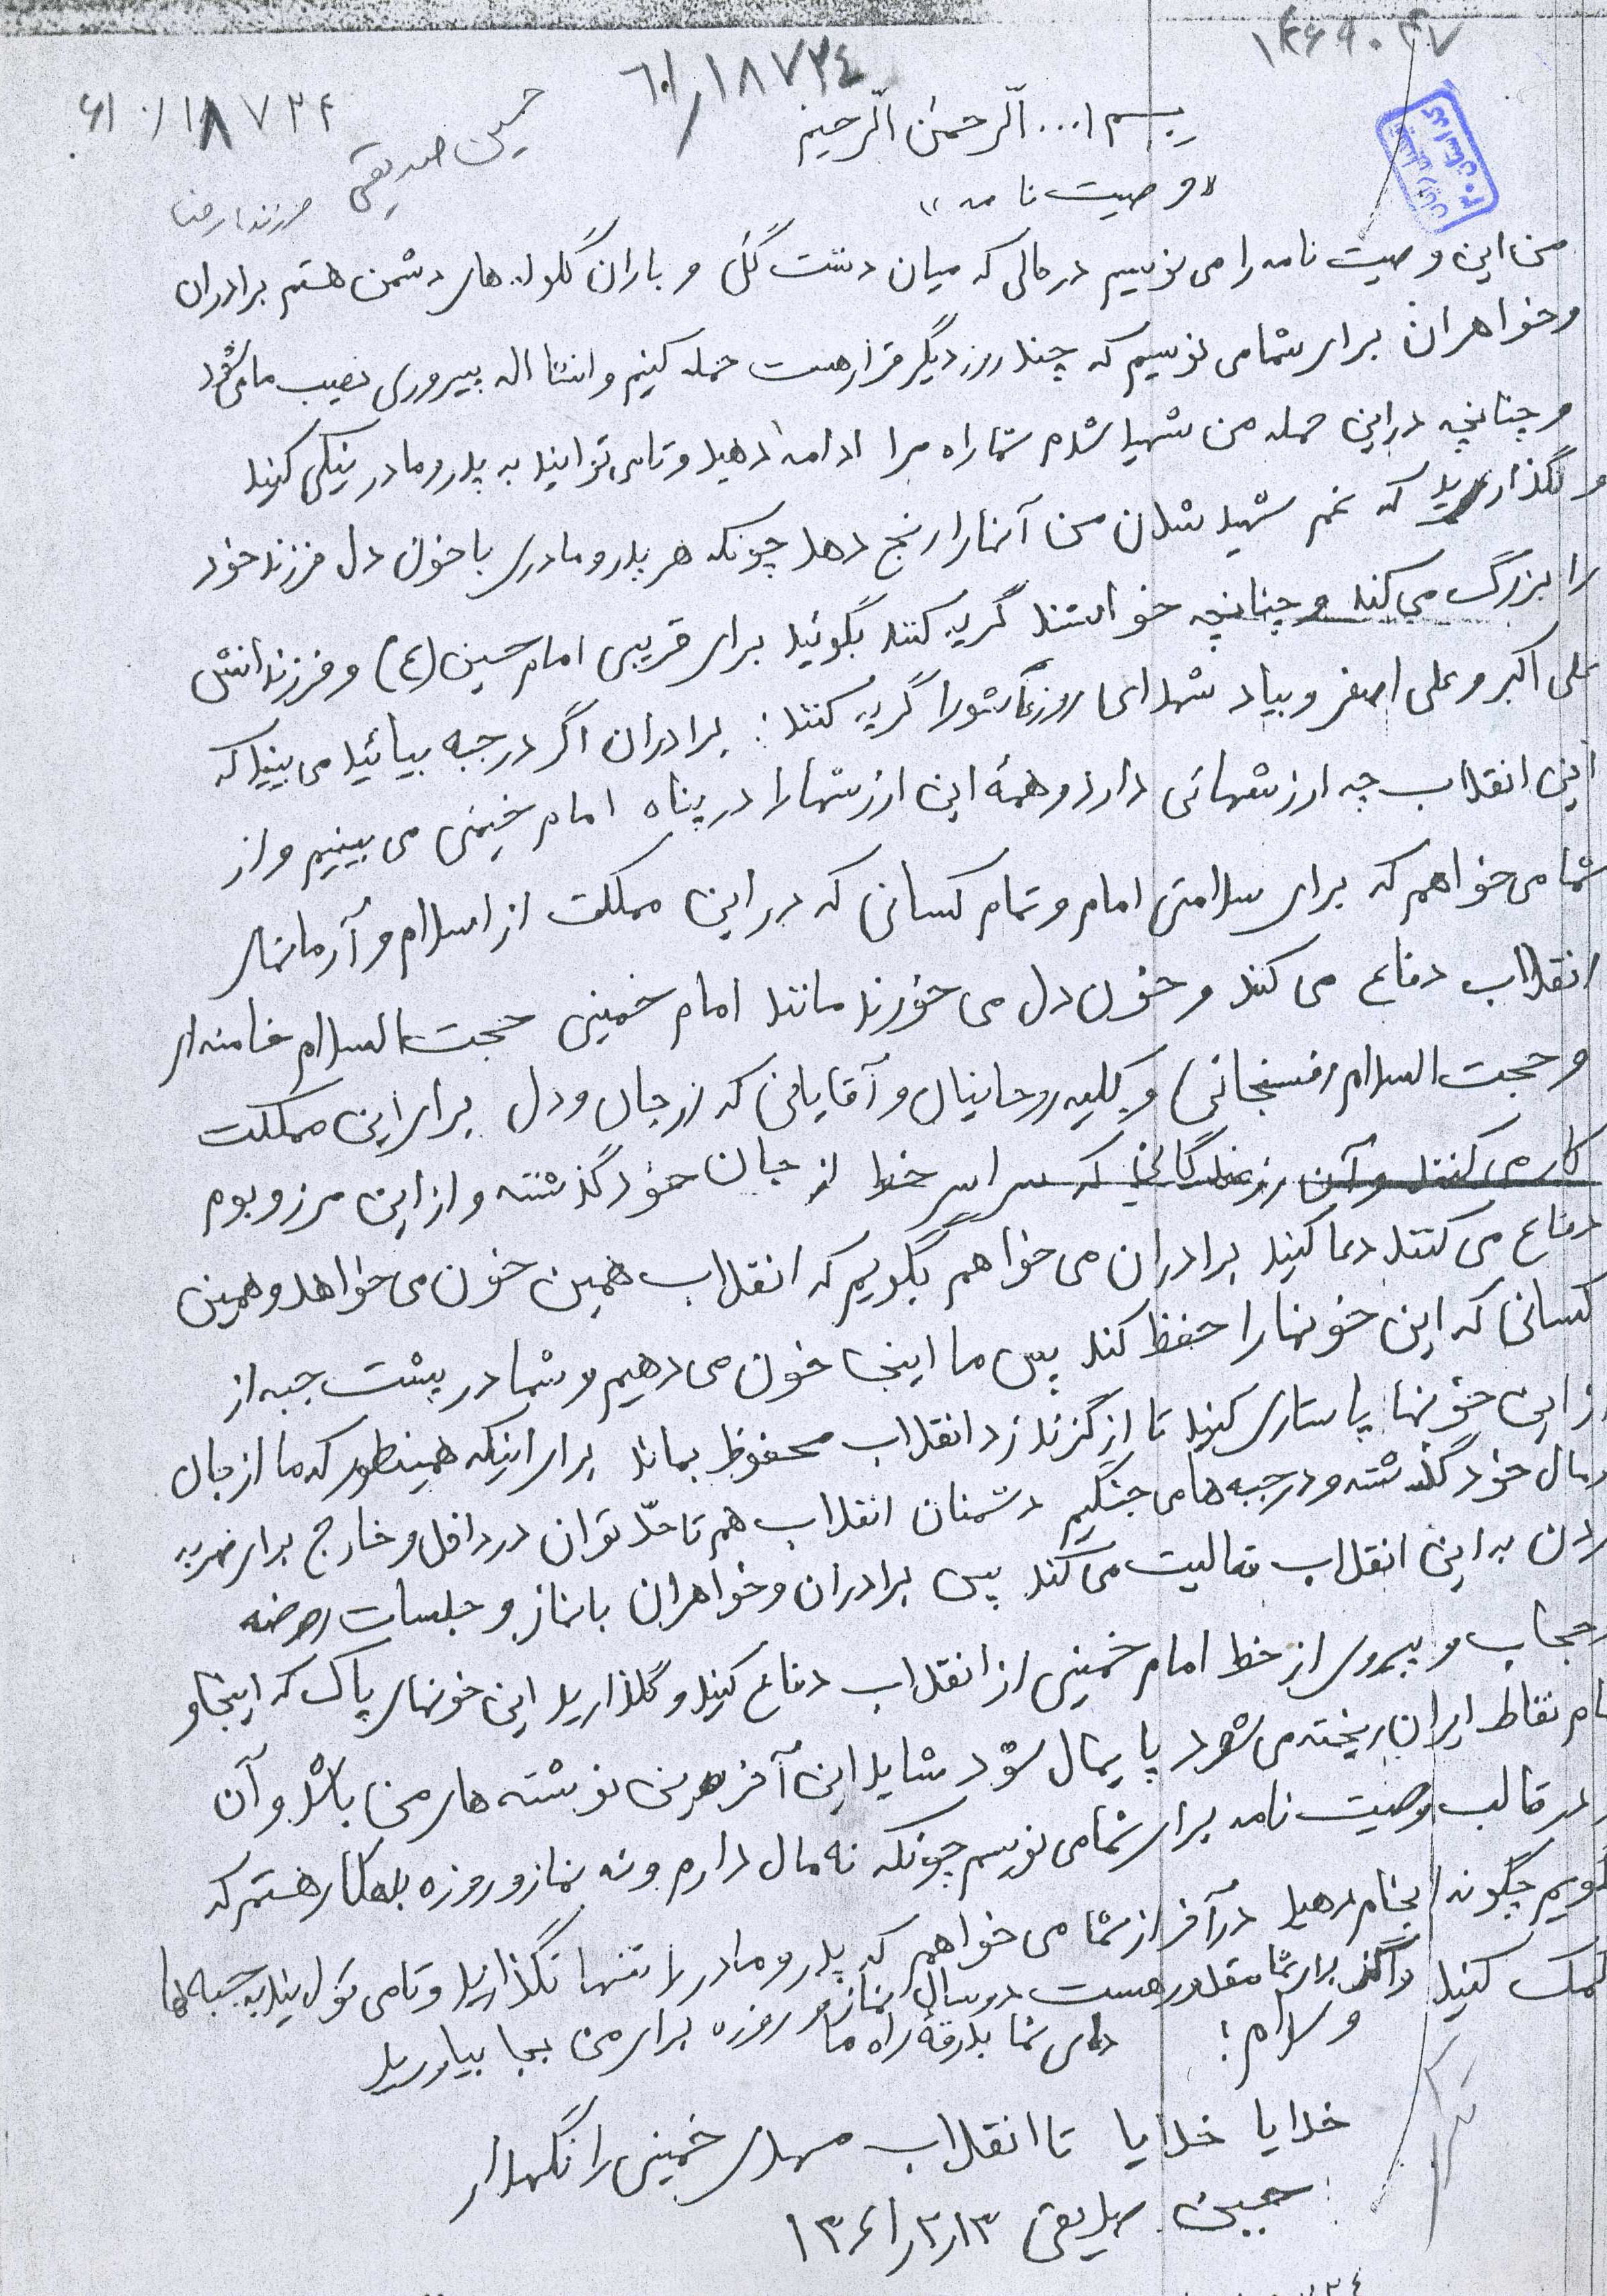 ۱۴۶۹۰۴۷
۶۰/۱۸۷۲٤
۶۱۰/۱۸۷۲۴
بسم ا... الرحمن الرحیم
حسین صدیقی
فرزند: رضا
«وصیت نامه»
من این وصیت نامه را می نویسم در حالی که میان دشت گل و باران گلوله های دشمن هستم برادران
و خواهران برای شما می نویسم که چند روز دیگر قرار هست حمله کنیم و انشا اله پیروزی نصیب ما می شود
و چنانچه در این حمله من شهید شدم شما راه مرا ادامه دهید و تا می توانید به پدر و مادر نیکی کنید
و نگذارید که غم شهید شدن من آنها را رنج دهد چونکه هر پدر و مادری با خون دل فرزند خود
را بزرگ می کند و چنانچه خواستند گریه کنند بگوئید برای غریبی امام حسین (ع) و فرزندانش
علی اکبر و علی اصغر و بیاد شهدای روز عاشورا گریه کنند: برادران اگر در جبه بیائید می بینید که
این انقلاب چه ارزشهائی دارد و همهٔ این ارزشها را در پناه امام خمینی می بینیم و از
شما می خواهم که برای سلامتی امام و تمام کسانی که در این مملکت از اسلام و آرمانهای
انقلاب دفاع می کند و خون دل می خورند مانند امام خمینی حجت السلام خامنه ای
و حجت السلام رفسنجانی) و کلیه روحانیان و آقایانی که از جان و دل برای این مملکت
کار می کنند و آن رزمندگانی که سراسر خط از جان خود گذشته و از این مرز و بوم
دفاع می کنند دعا کنید برادران می خواهم بگویم که انقلاب همین خون می خواهد و همین
کسانی که این خونها را حفظ کند پس ما اینجا خون می دهیم و شما در پشت جبه از
از این خونها پاستاری کنید تا از گزند زد انقلاب محفوظ بماند برای اینکه همینطور که ما از جان
و مال خود گذشته و در جبه ها می جنگیم دشمنان انقلاب هم تا حدّ توان در داخل و خارج برای ضربه
زدن به این انقلاب فعالیت می کند پس برادران و خواهران با نماز و جلسات روضه
و حجاب و پیروی از خط امام خمینی از انقلاب دفاع کنید و نگذارید این خونهای پاک که اینجا و
تمام نقاط ایران ریخته می شود پایمال شود شاید این آخرین نوشته های من باشد و آن
در قالب وصیت نامه برای شما می نویسم چونکه نه مال دارم و نه نماز و روزه بدهکار هستم که
بگویم چگونه انجام دهید در آخر از شما می خواهم که پدر و مادر را تنها نگذارید و تا می توانید به جبه ها
کمک کنید و اگر برای شما مقدور هست دو سال نماز و روزه برای من بجا بیاورید
و سلام: دعای شما بدرقهٔ راه ما
خدایا خدایا تا انقلاب مهدی خمینی را نگهدار
حسین صدیقی ۱۳۶۱/۲/۱۳